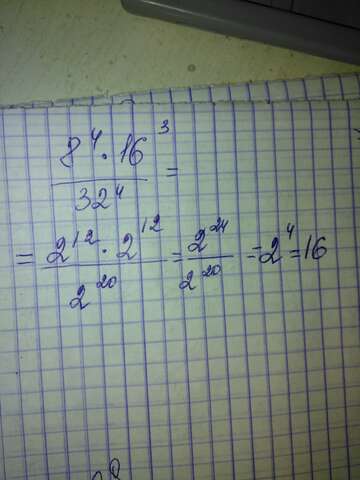 8⁴ · 16³
32⁴ =
= 2¹² · 2¹² / 2²⁰ = 2²⁴ / 2²⁰ = 2⁴ = 16